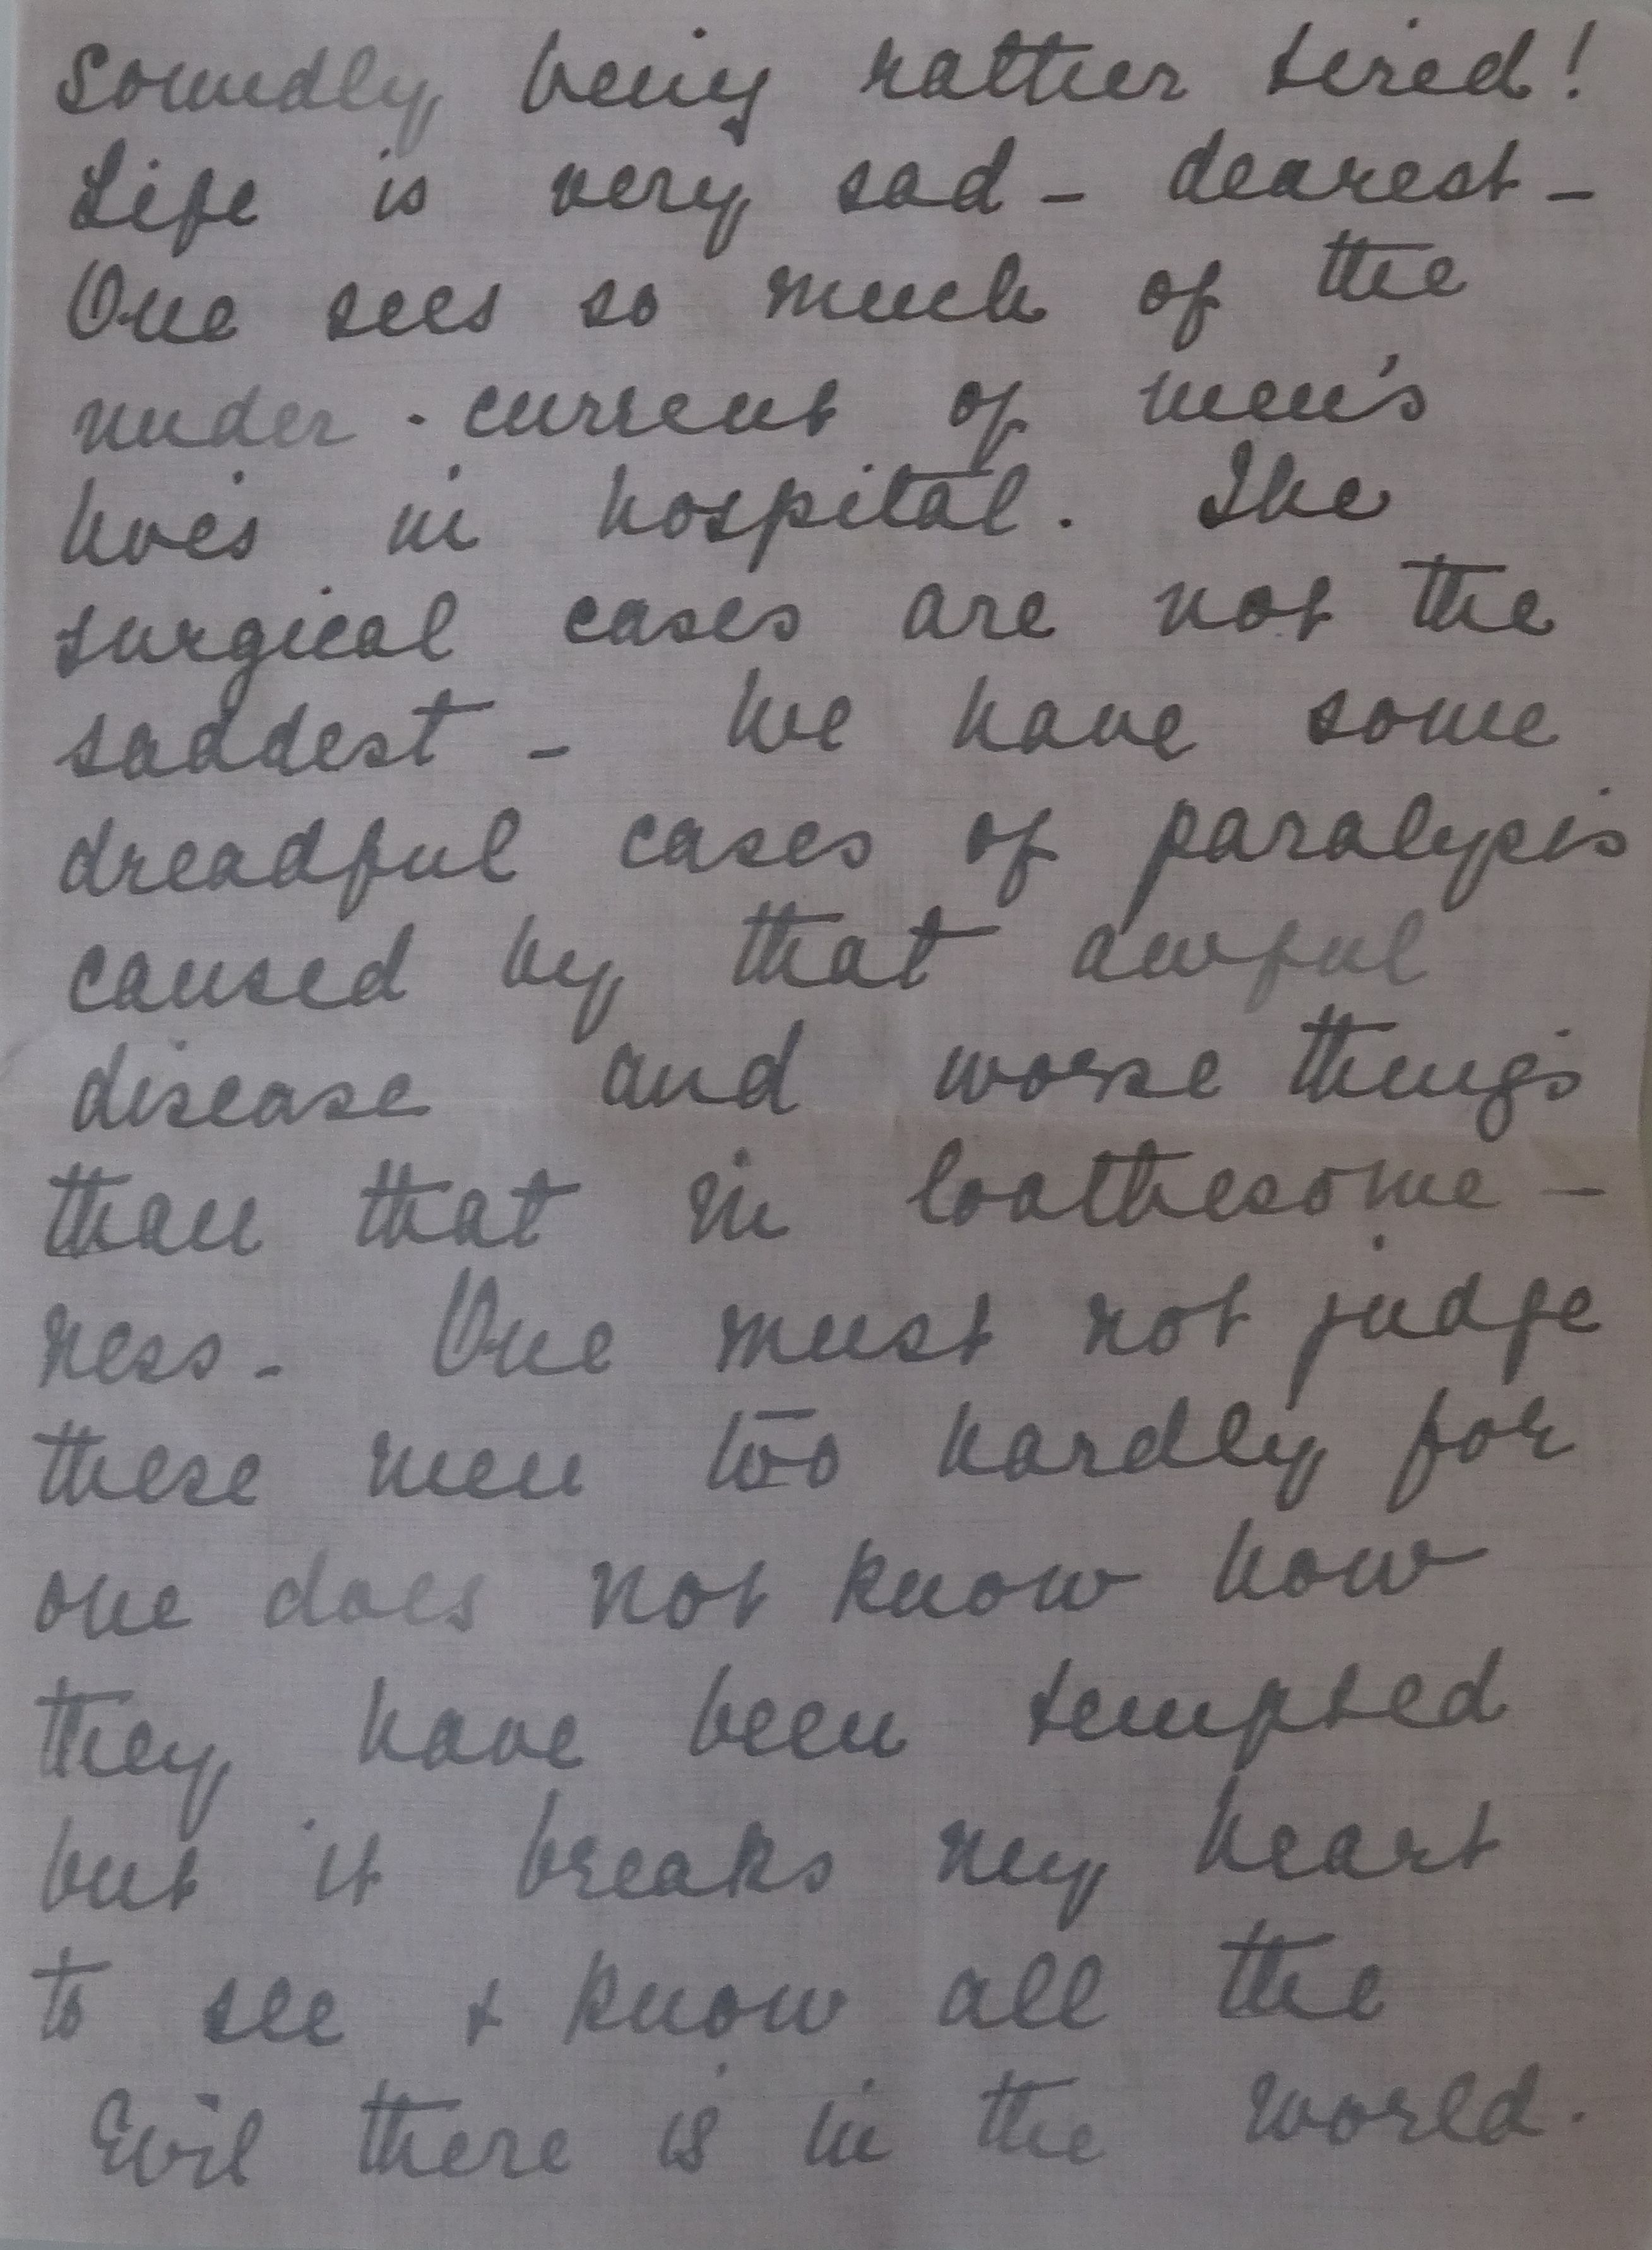 Soundly being rather tired!
Life is very sad - dearest -
One sees so much of the
under-current of men's
lives in hospital. The
surgical cases are not the
saddest - We have some
dreadful cases of paralysis
caused by that awful
disease and worse things
than that in loathesome -
ness - One must not judge
these men too hardly for
one does not know how
they have been tempted
but it breaks my heart
to see & know all the
Evil there is in the world.